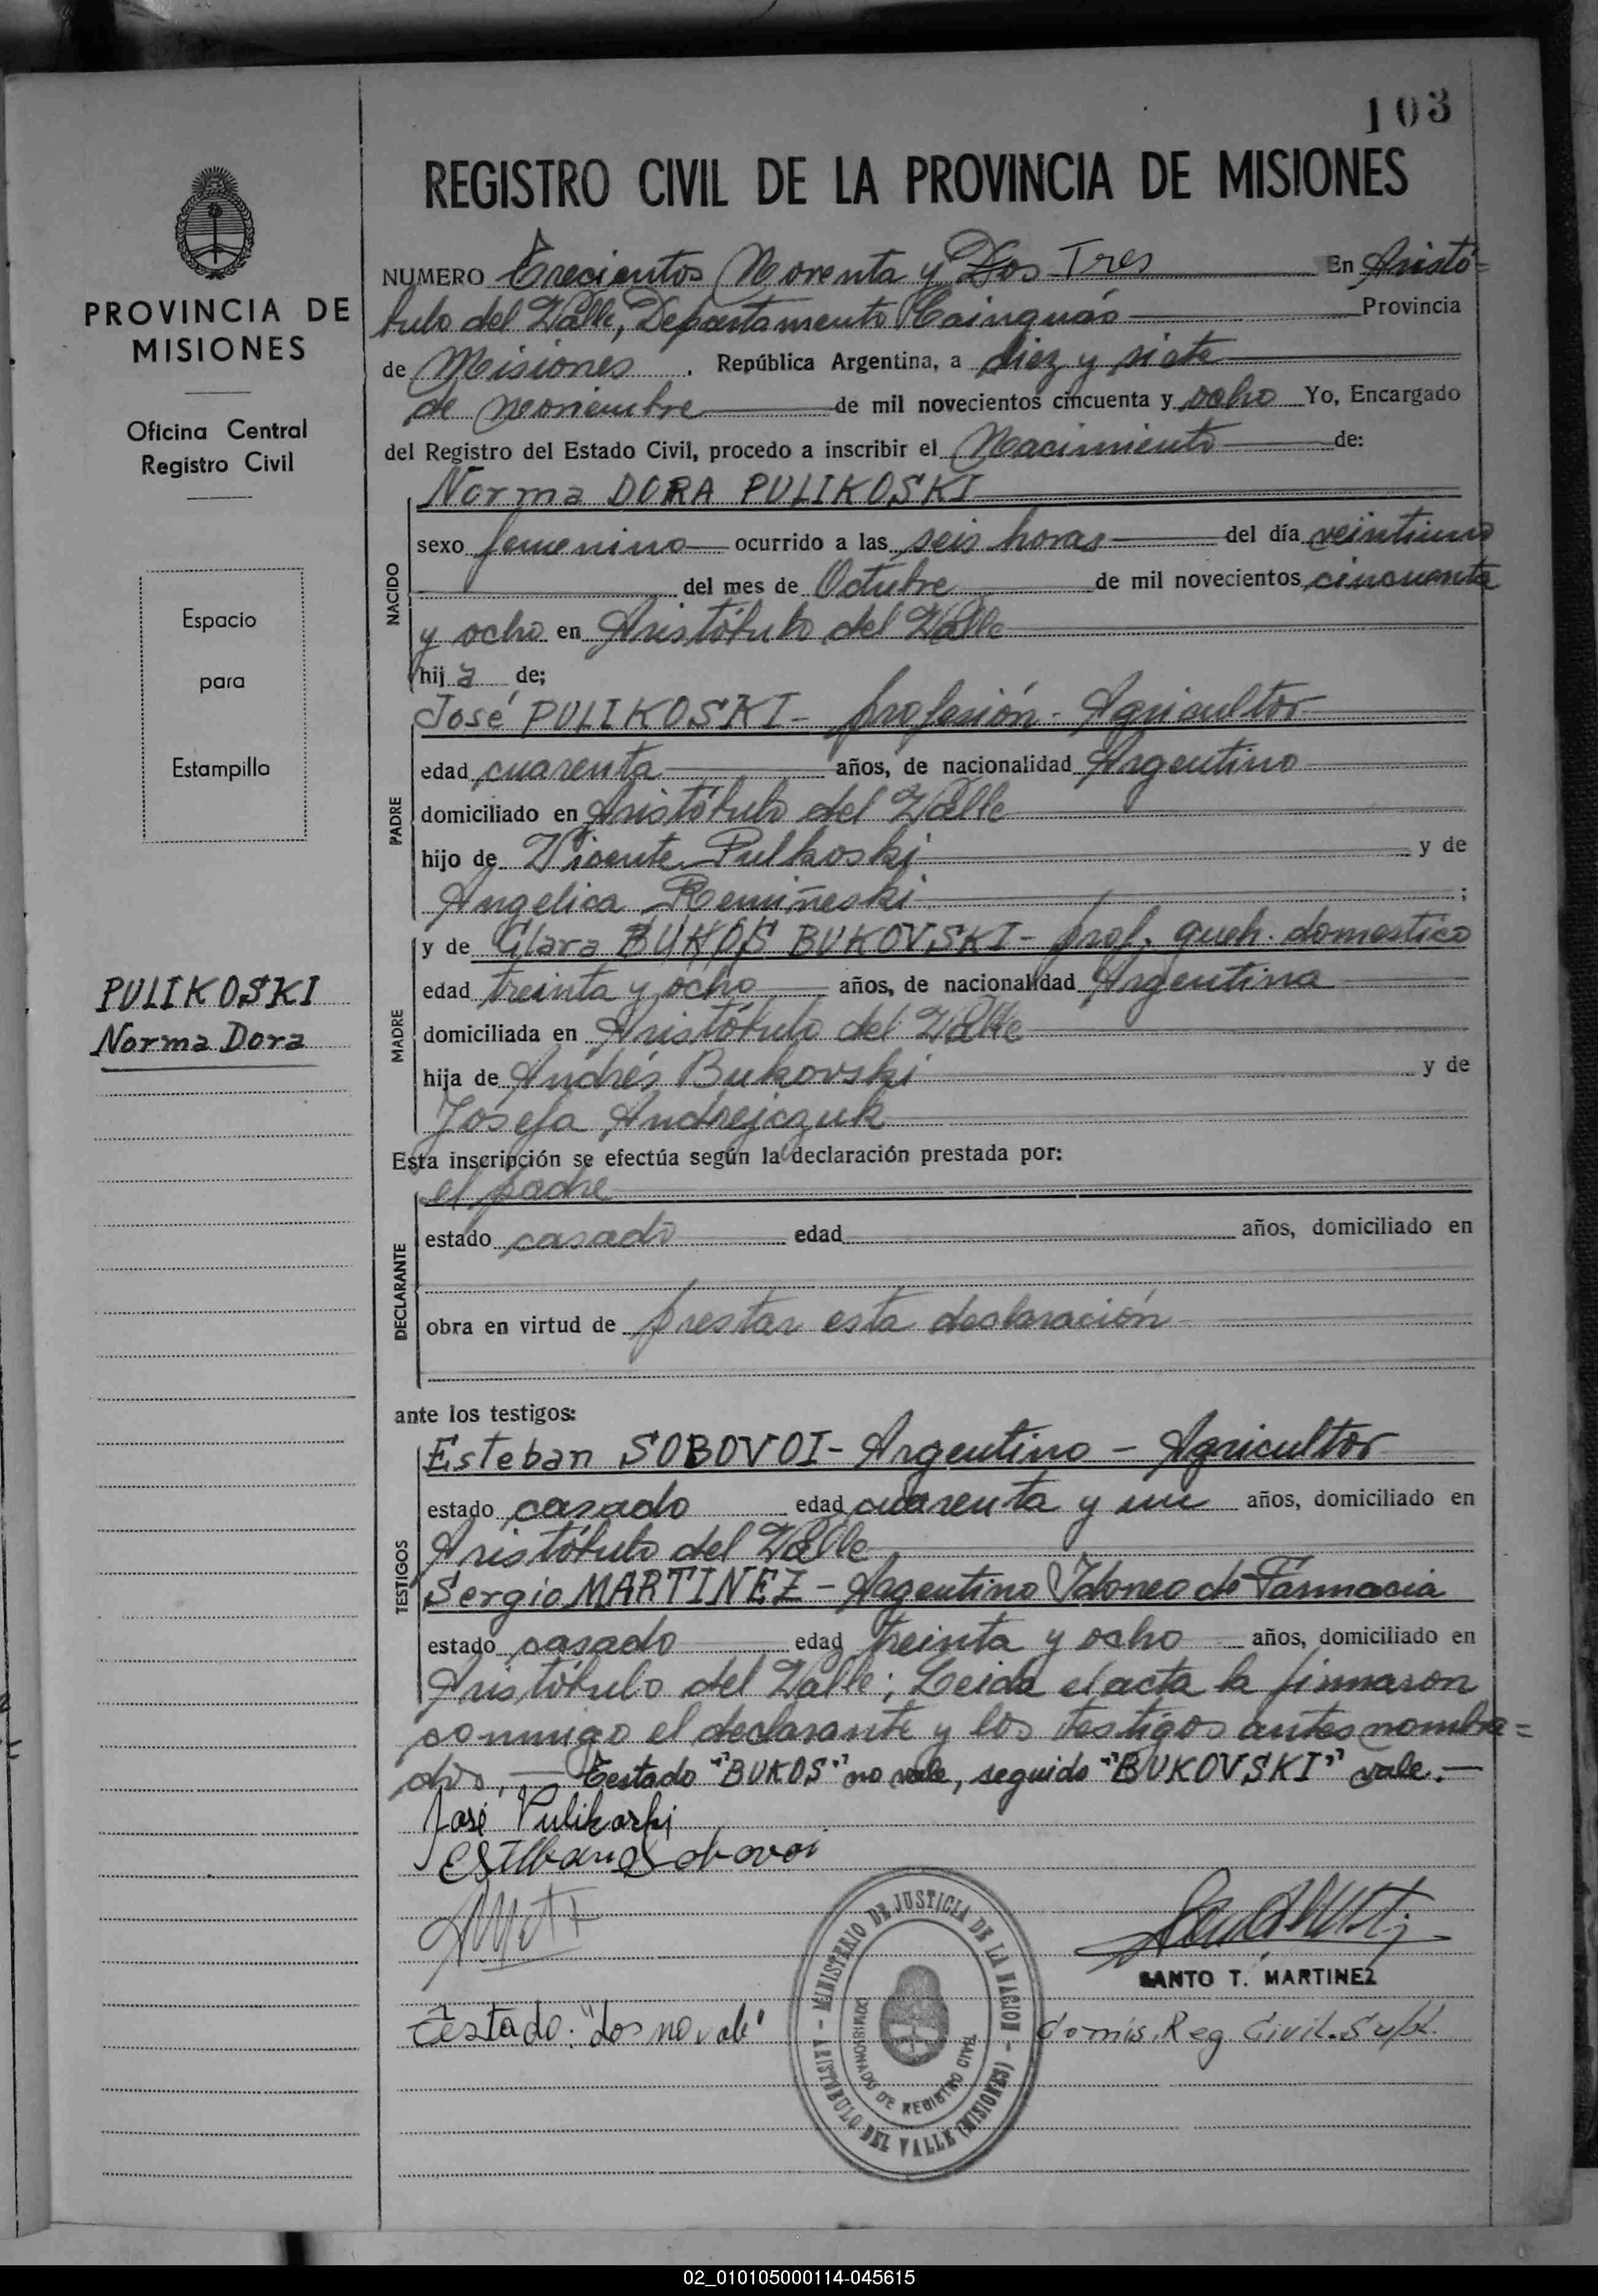 103
REGISTRO CIVIL DE LA PROVINCIA DE MISIONES
PROVINCIA DE
MISIONES
Oficina Central
Registro Civil
Espacio
para
Estampilla
PULIKOSKI
Norma Dora
NUMERO Trecientos Noventa y Dos Tres En Aristó=
bulo del Valle, Departamento Cainguás Provincia
de Misiones. República Argentina, a diez y siete
de noviembre de mil novecientos cincuenta y ocho Yo, Encargado
del Registro del Estado Civil, procedo a inscribir el Nacimiento de:
NACIDO
Norma DORA PULIKOSKI
sexo femenino ocurrido a las seis horas del día veintiuno
del mes de Octubre de mil novecientos cincuenta
y ocho en Aristóbulo del Valle
hija de;
PADRE
José PULIKOSKI - profesión - Agricultor
edad cuarenta años, de nacionalidad Argentino
domiciliado en Aristóbulo del Valle
hijo de Vicente Pulkoski y de
Angelica Remiñeski ;
MADRE
y de Clara BUKOS BUKOVSKI - prof. queh. domestico
edad treinta y ocho años, de nacionalidad Argentina
domiciliada en Aristóbulo del Valle
hija de Andrés Bukovski y de
Josefa Andrejczuk
Esta inscripción se efectúa según la declaración prestada por:
DECLARANTE
el padre
estado casado edad años, domiciliado en
obra en virtud de prestar esta declaración
ante los testigos:
TESTIGOS
Esteban SOBOVOI - Argentino - Agricultor
estado casado edad cuarenta y un años, domiciliado en
Aristóbulo del Valle
Sergio MARTINEZ - Argentino Idoneo de Farmacia
estado casado edad treinta y ocho años, domiciliado en
Aristóbulo del Valle; Leida el acta la firmaron
conmigo el declarante y los testigos antes nombra=
dos. — Testado "BUKOS" no vale, seguido "BUKOVSKI" vale. —
José Pulikoski
Esteban Sobovoi
SANTO T. MARTINEZ
Testado: "dos no vale" Comis. Reg. Civil. Supl.
MINISTERIO DE JUSTICIA DE LA NACION - ARISTOBULO DEL VALLE (MISIONES) -
COMISIONADO DE REGISTRO CIVIL
02_010105000114-045615